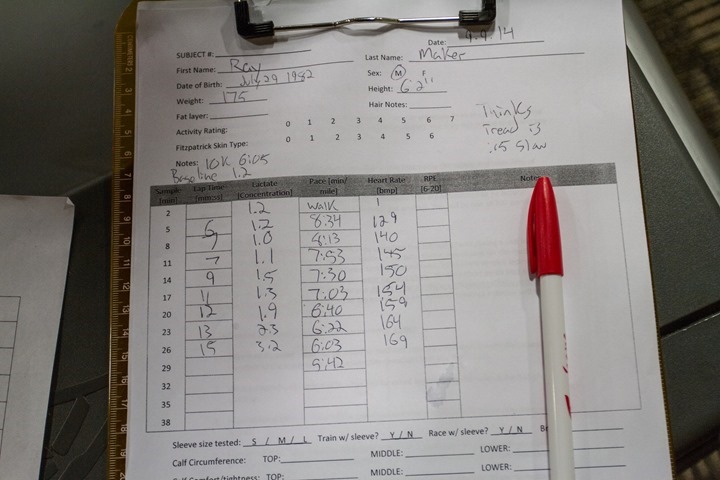 SUBJECT #:
Date: 4.9.14
First Name: Ray Last Name: Maker
Date of Birth: July 29 1982 Sex: M F
Weight: 175 Height: 6'2"
Fat layer: Hair Notes:
Activity Rating: 0 1 2 3 4 5 6 7
Fitzpatrick Skin Type: 0 1 2 3 4 5 6
Thinks
Tread is
Notes: 10K 6:05
Baseline 1.2
Sample [min] Lap Time [mm:ss] Lactate [Concentration] Pace [min/mile] Heart Rate [bmp] RPE [6-20] Notes
2 1.2 walk
5 6 1.2 8:34 129
8 1.0 8:13 140
11 7 1.1 7:53 145
14 9 1.5 7:30 150
17 11 1.3 7:03 154
20 12 1.9 6:40 159
23 13 2.3 6:22 164
26 15 3.2 6:03 169
29 5:42
32
35
38
Sleeve size tested: S / M / L Train w/ sleeve? Y / N Race w/ sleeve? Y / N
Calf Circumference: TOP: MIDDLE: LOWER:
Calf Comfort/tightness: TOP: MIDDLE: LOWER: